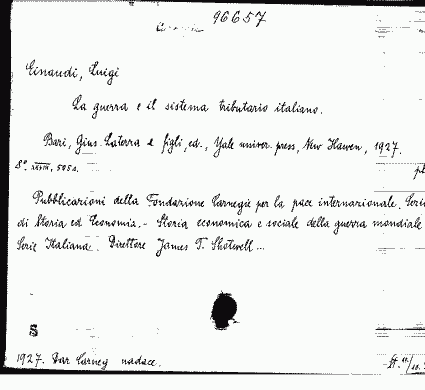 96657
Einaudi, Luigi
La guerra e il sistema tributario italiano.
Bari, Gius. Laterra e figli, ed., Yale univer. press, New Hawen, 1927.
8°.
Pubblicazioni della Fondazione Carnegie per la pace internazionale. Serie
di Storia ed Economia. - Storia economica e sociale della guerra mondiale
Serie Italiana. Direttore James T. Shotwell ...
S
1927. Dar Carneg nadace.